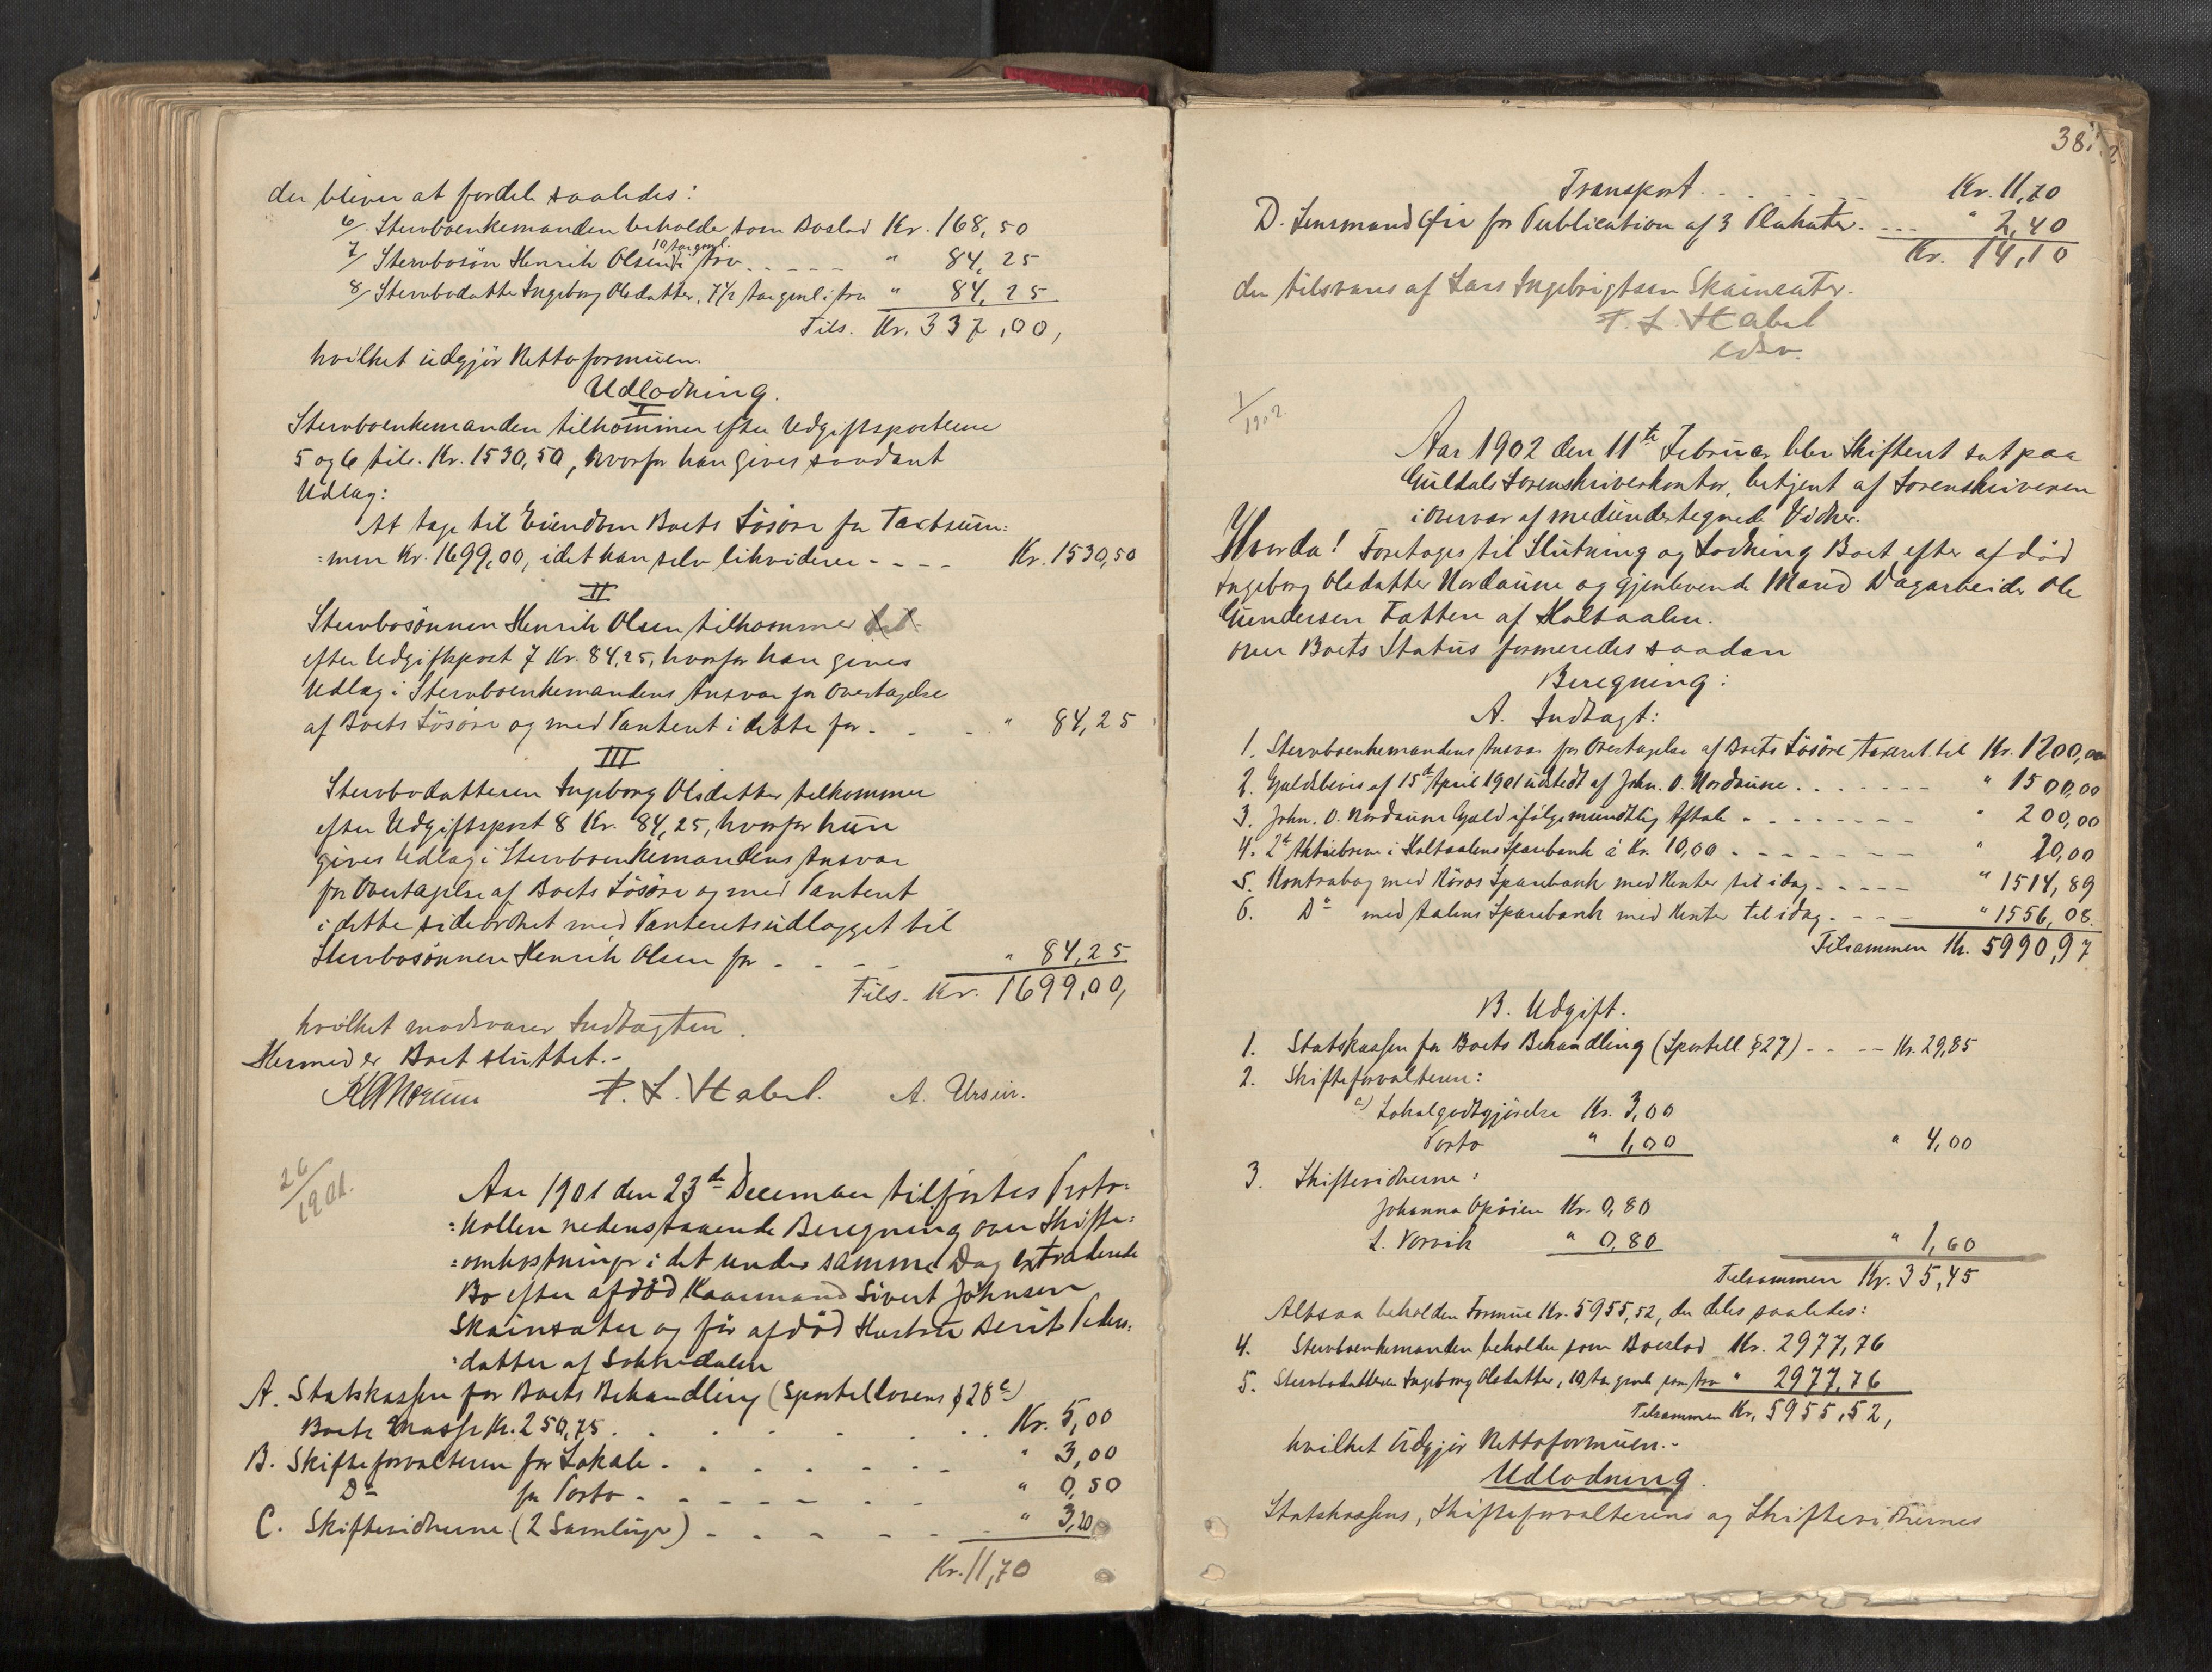 der bliver at fordele saaledes:
6/ Stervboenkemanden beholder som Boslod Kr. 168,50
10 aar gml.
7/ Stervbosön Henrik Olsen i Arv . . . . . " 84,25
8/ Stervbodatter Ingeborg Olsdatter, 7 1/2 aar gml i Arv " 84,25
Tils. Kr. 337,00,
hvilket udgjör Nettoformuen.
Udlodning.
I
Stervboenkemanden tilkommer efter Udgiftsposterne
5 og 6 tils. Kr. 1530,50, hvorfor han gives saadant
Udlæg:
At tage til Eiendom Boets Lösöre for Taxtsum=
=men Kr. 1699,00, idet han selv likviderer - - - - Kr. 1530,50
II
Stervbosönnen Henrik Olsen tilkommer
efter Udgiftspost 7 Kr. 84,25, hvorfor han gives
Udlæg i Stervboenkemandens Ansvar for Overtagelse
af Boets Lösöre og med Panteret i dette for - . - . . " 84,25
III
Stervbodatteren Ingeborg Olsdatter tilkommer
efter Udgiftspost 8 Kr. 84,25, hvorfor hun
gives Udlæg i Stervboenkemandens Ansvar
for Overtagelse af Boets Lösöre og med Panteret
i dette sideordnet med Panteretsudlægget til
Stervbosönnen Henrik Olsen for - - - - " 84,25
Tils. Kr. 1699,00,
hvilket modsvarer Indtægten.
Hermed er Boet sluttet.-
P. L. Stabel. A. Ursin.
26/1901.
Aar 1901 den 23de December tilförtes Proto=
=kollen nedenstaaende Beregning over Skifte=
=omkostninger i det under samme Dag extraderede
Bo efter afdöd Kaarmand Sivert Johnsen
Skainsæter og för afdöd Hustru Berit Peders=
=datter af Soknedalen
A. Statskassen for Boets Behandling (Sportellovens § 28c)
Boets Masse Kr. 250,75 . . . . . . . . Kr. 5,00
B. Skifteforvalteren for Lokale - . . - . - - " 3,00
Do for Porto - . - - - - . - " 0,50
C. Skiftevidnerne (2 Samlinger) - . - . - - - " 3,20
Kr. 11,70
38
Transport . . . . . . - Kr. 11,70
D. Lensmand for Publication af 3 Plakater. - - - " 2,40
Kr. 14,10
der tilsvares af Lars Ingebrigtsen Skainsæter.
P. L. Stabel
edsv.
1/1902.
Aar 1902 den 11te Februar blev Skifteret sat paa
Guldals Sorenskriverkontor, betjent af Sorenskriveren
i Overvær af medundertegnede Vidner.
Hvorda! Foretoges til Slutning og Lodning Boet efter afdöd
Ingeborg Olsdatter Nordaune og gjenlevende Mand Dagarbeider Ole
Gundersen Tatten af Holtaalen.
Over Boets Status formeredes saadan
Beregning:
A. Indtægt:
1. Stervboenkemandens Ansvar for Overtagelse af Boets Lösöre taxeret til Kr. 1200,00
2. Gjældsbevis af 15de April 1901 udstedt af John. O. Nordaune . . . . . . . - " 1500,00
3. John. O. Nordaune Gjæld ifölge mundtlig Aftale - - - - - - - - " 200,00
4. 2de Aktiebreve i Holtaalens Sparebank à Kr. 10,00 - - - - - - - " 20,00
5. Kontrabog med Röros Sparebank med Renter til idag - - - - - " 1514,89
6. Do med Aalens Sparebank med Renter til idag - - - - " 1556,08.
Tilsammen Kr. 5990,97
B. Udgift.
1. Statskassen for Boets Behandling (Sportell § 27) - - - - Kr. 29,85
2. Skifteforvalteren:
a) Lokalgodtgjörelse Kr. 3,00
Porto " 1,00 " 4,00
3. Skiftevidnerne:
Johanna Opöien Kr. 0,80
L. Vorvik " 0,80 " 1,60
Tilsammen Kr. 35,45
Altsaa beholden Formue Kr. 5955,52, der deles saaledes:
4. Stervboenkemanden beholder som Boeslod Kr. 2977,76
5. Stervbodatteren Ingeborg Olsdatter, 10 aar gml som Arv " 2977,76
Tilsammen Kr. 5955,52,
hvilket Udgjör Nettoformuen.-
Udlodning.
Statskassens, Skifteforvalterens og Skiftevidnernes